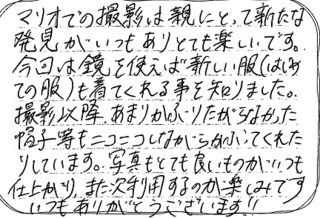 マリオでの撮影は親にとって新たな
発見がいつもありとても楽しいです。
今回は鏡を使えば新しい服(はじめ
ての服)も着てくれる事を知りました。
撮影以降、あまりかぶりたがらなかった
帽子等もニコニコしながらかぶってくれた
りしています。写真もとても良いものがいつも
仕上がり、また次利用するのが楽しみです
いつもありがとうございます!!